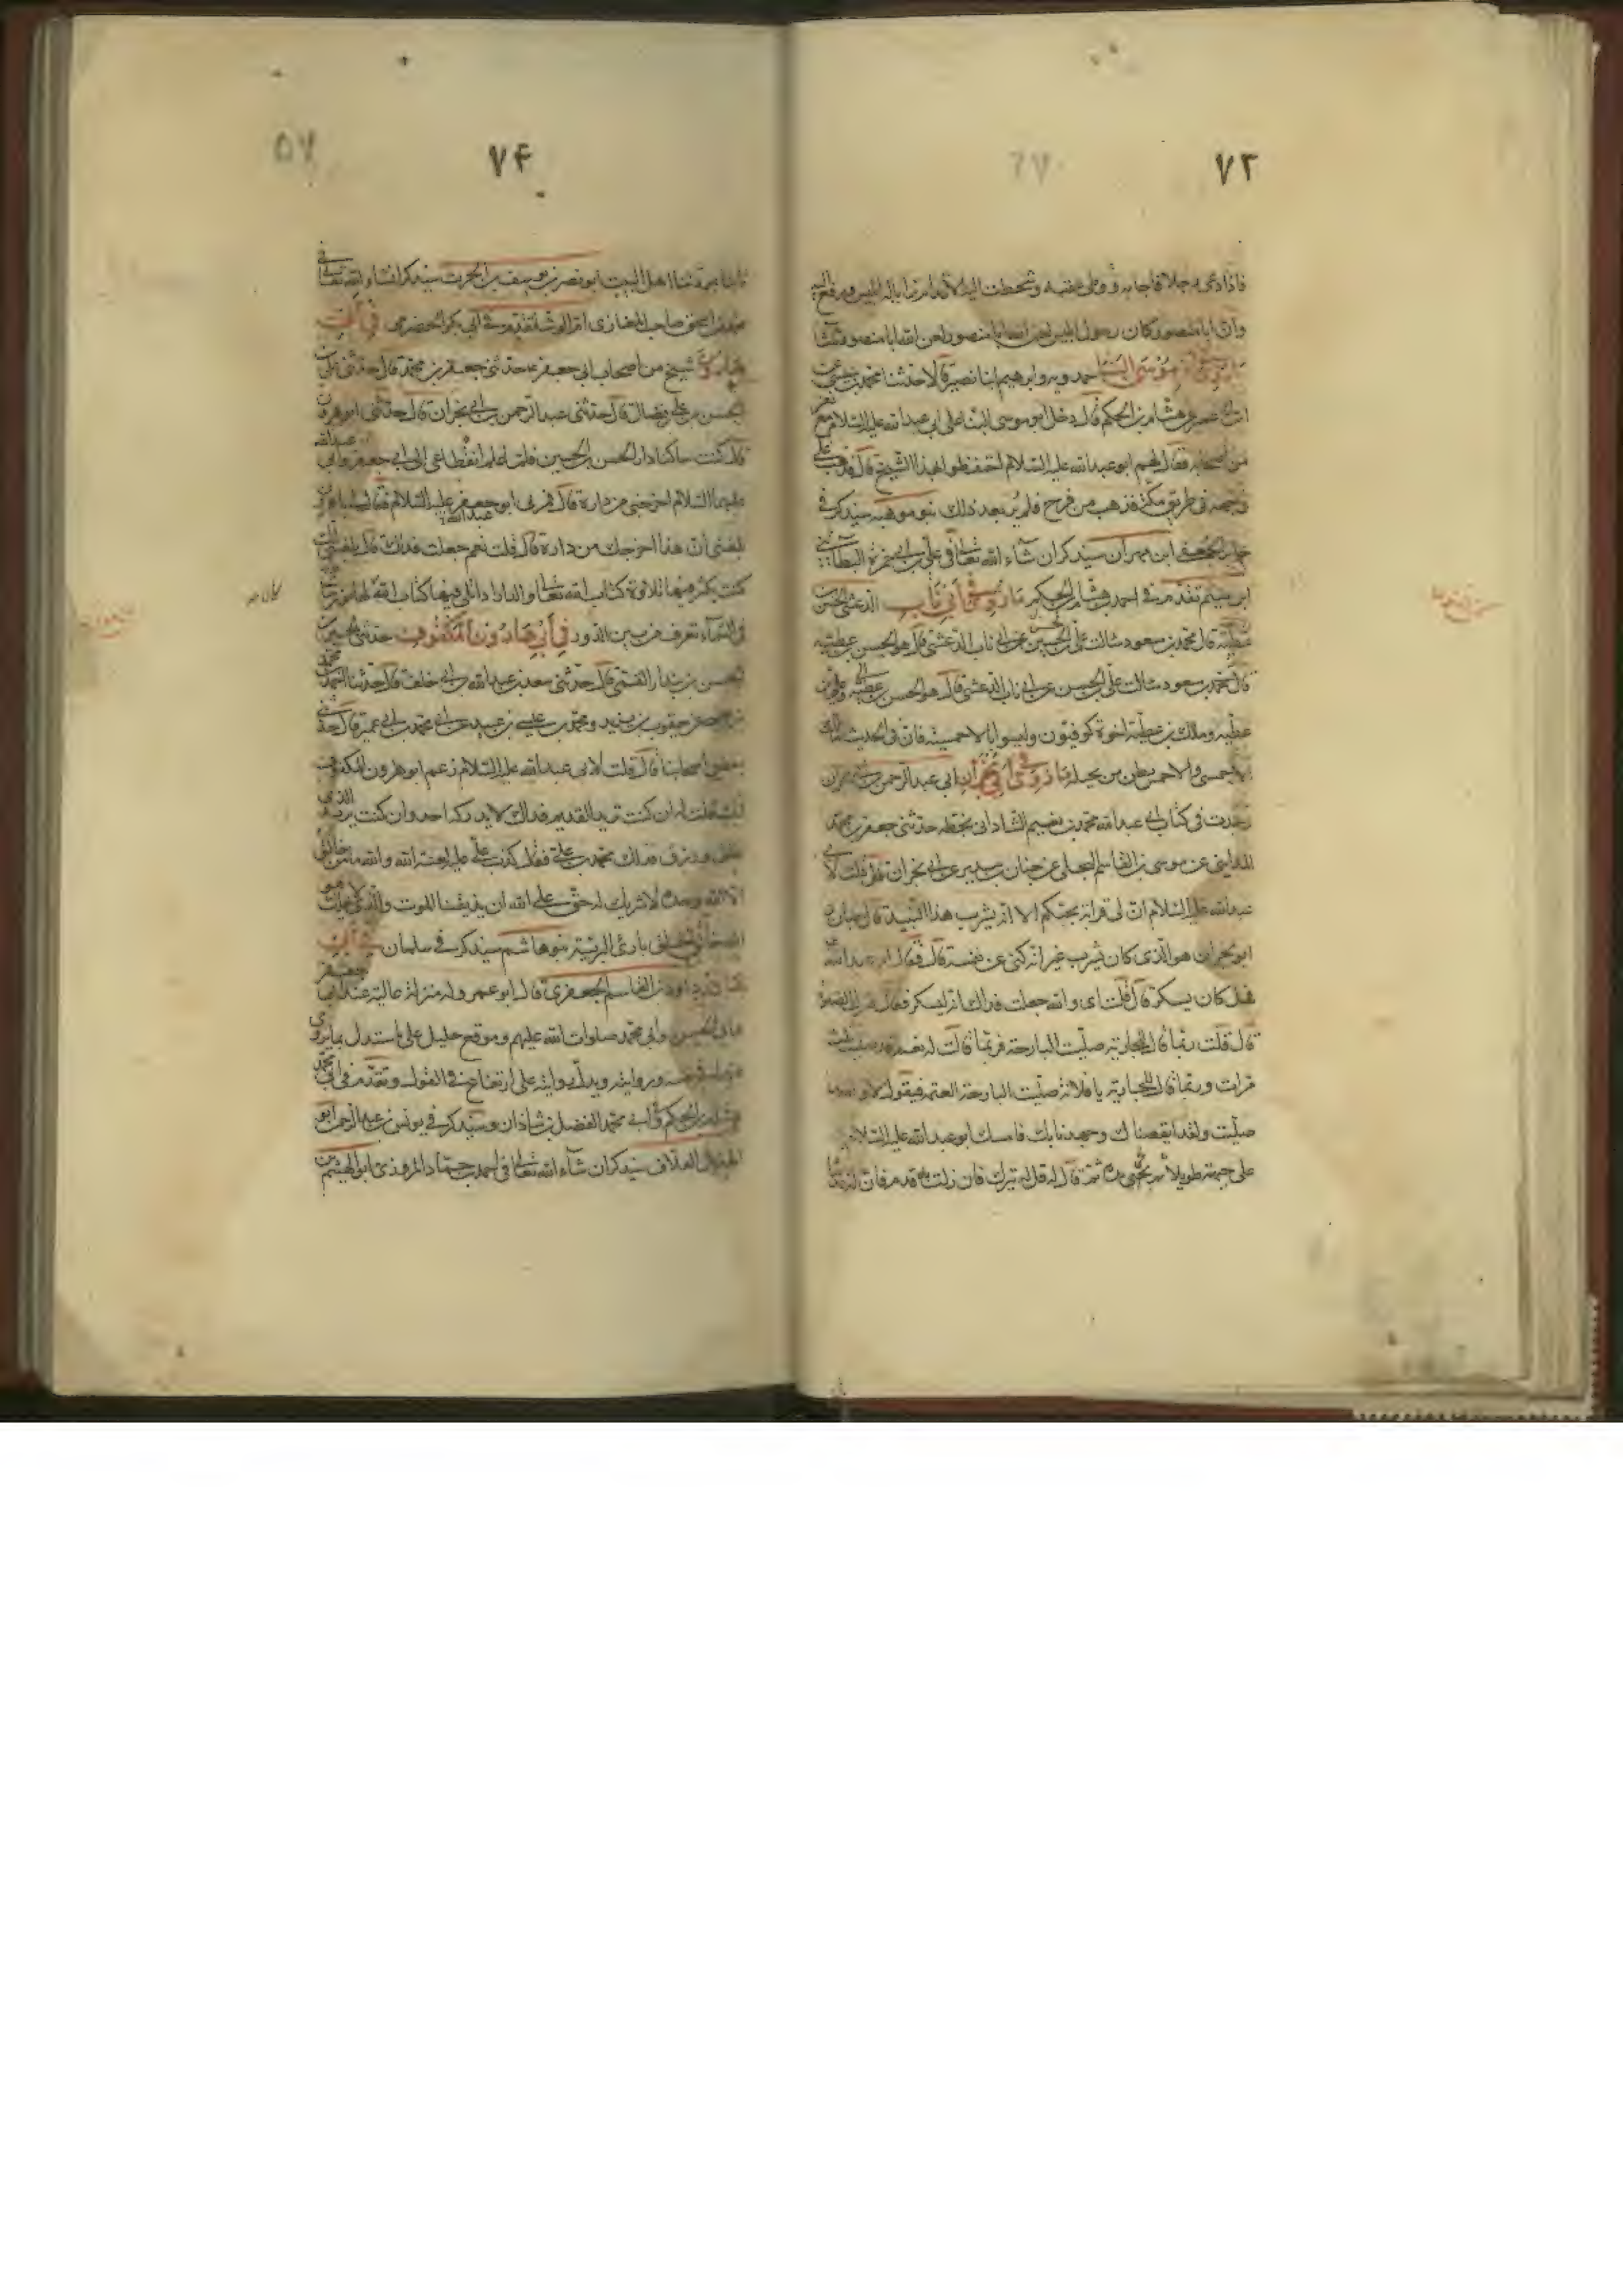 ٧٣
فاذا دعى رجلا فاجابه ووطى عقبه وتخطت اليه الاقدام تراءا له ابليس ورفع اليه
وان ابا منصور كان رسول ابليس لعن الله ابا منصور لعن الله ابا منصور ثلثا
موسى البنا حمدويه وابرهيم ابنا نصير قالا حدثنا محمد بن عيسى عن
ابن ابى عمير عن هشام بن الحكم قال دخل ابو موسى البنا على ابى عبد الله عليه السلام مع نفر
من اصحابه فقال لهم ابو عبد الله عليه السلام احتفظوا بهذا الشيخ قال فذهب على
وجهه فى طريق مكة فذهب من قزح فلم ير بعد ذلك سيذكر فى
ابن مهران سيذكر ان شاء الله تعالى فى على بن ابى حمزة البطاينى
ابن ميثم تقدم فى احمد هشام بن الحكم ما روى فى ابى ناب الدغشى الحسن بن
عطية قال محمد بن مسعود سالت على بن الحسين عن ابى ناب الدغشى قال هو الحسن بن عطية
قال محمد بن مسعود سالت على بن الحسن عن ابى ناب الدغشى قال هو الحسن بن عطية وعلى بن
عطية وملك بن عطية اخوة كوفيون وليسوا بالاحمسية فان فى الحديث مالك
الاحمسى والاحمس بطن من بجيلة ما روى فى ابى نجران ابى عبد الرحمن بن ابى نجران
وجدت فى كتاب ابى عبد الله محمد بن نعيم الشاذانى بخطه حدثنى جعفر بن محمد
المداينى عن موسى بن القاسم البجلى عن حنان بن سدير عن ابى نجران قال قلت لابى
عبد الله عليه السلام ان لى قرابة يحبكم الا انه يشرب هذا النبيذ قال حنان و
ابو نجران هو الذى كان يشرب غير انه كنى عن نفسه قال فقال ابو عبد الله
فهل كان يسكر قال قلت اى والله جعلت فداك انه ليسكر فقال فيترك الصلوة
قال قلت ربما قال للجارية صليت البارحة فربما قالت له نعم قد صليت ثلث
مرات وربما قال للجارية يا فلانة صليت البارحة العتمة فيقول لا والله ما
صليت ولقد ايقضناك وجهدنا بك فامسك ابو عبد الله عليه السلام يده
على جبهته طويلا ثم نحى يده ثم قال له قل له يتركه فان زلت به قدم فان له قدما
٧۴
ثابتا بمودتنا اهل البيت ابو نصر بن يوسف بن الحرث سيذكر انشاء الله تعالى فى
محمد بن اسحق صاحب المغازى تقدم فى ابى بكر الحضرمى فى ابى
هارون شيخ من اصحاب ابى جعفر ع حدثنى جعفر بن محمد قال حدثنى على بن
الحسن بن على بن فضال قال حدثنى عبد الرحمن بن ابى نجران قال حدثنى ابو هرون
قال كنت ساكنا دار الحسن بن الحسين فلما علم انقطاعى الى ابى جعفر وابى عبد الله
عليهما السلام اخرجنى من داره قال فمر بى ابو عبد الله عليه السلام فقال لى يا ابا هرون
بلغنى ان هذا اخرجك من داره قال قلت نعم جعلت فداك قال بلغنى انك
كنت تكثر فيها تلاوة كتاب الله تعالى والدار اذا تلى فيها كتاب الله كان لها نور ساطع
فى السماء تعرف من بين الدور فى ابى هارون المكفوف حدثنى الحسين بن
الحسن بن بندار القمى قال حدثنى سعد بن عبد الله بن ابى خلف قال حدثنا احمد بن محمد
يعقوب بن يزيد ومحمد بن عيسى بن عبيد عن محمد بن ابى عمير قال حدثنى
بعض اصحابنا قال قلت لابى عبد الله عليه السلام زعم ابو هرون المكفوف
انك قلت له ان كنت تريد القديم فذاك لا يدركه احد وان كنت تريد الذى
خلق ورزق فذاك محمد بن على فقال كذب على عليه لعنة الله والله ما من خالق
الا الله وحده لا شريك له حق على الله ان يذيقنا الموت والذى لا يهلك هو
الله خالق الخلق بارئ البرية بنو هاشم سيذكر فى سلمان فى ابى
هاشم داود بن القاسم الجعفرى قال ابو عمرو له منزلة عالية عند ابى جعفر
وابى الحسن وابى محمد صلوات الله عليهم وموقع جليل على ما يستدل بما يروى
عنهم فى نفسه وروايته ويدل روايته على ارتفاع فى القول وتقدم فى ابى محمد
هشام بن الحكم وابى محمد الفضل بن شاذان وسيذكر فى يونس بن عبد الرحمن ابو
الهذيل العلاف سيذكر ان شاء الله تعالى فى احمد بن حماد المروزى ابو الهيثم بن